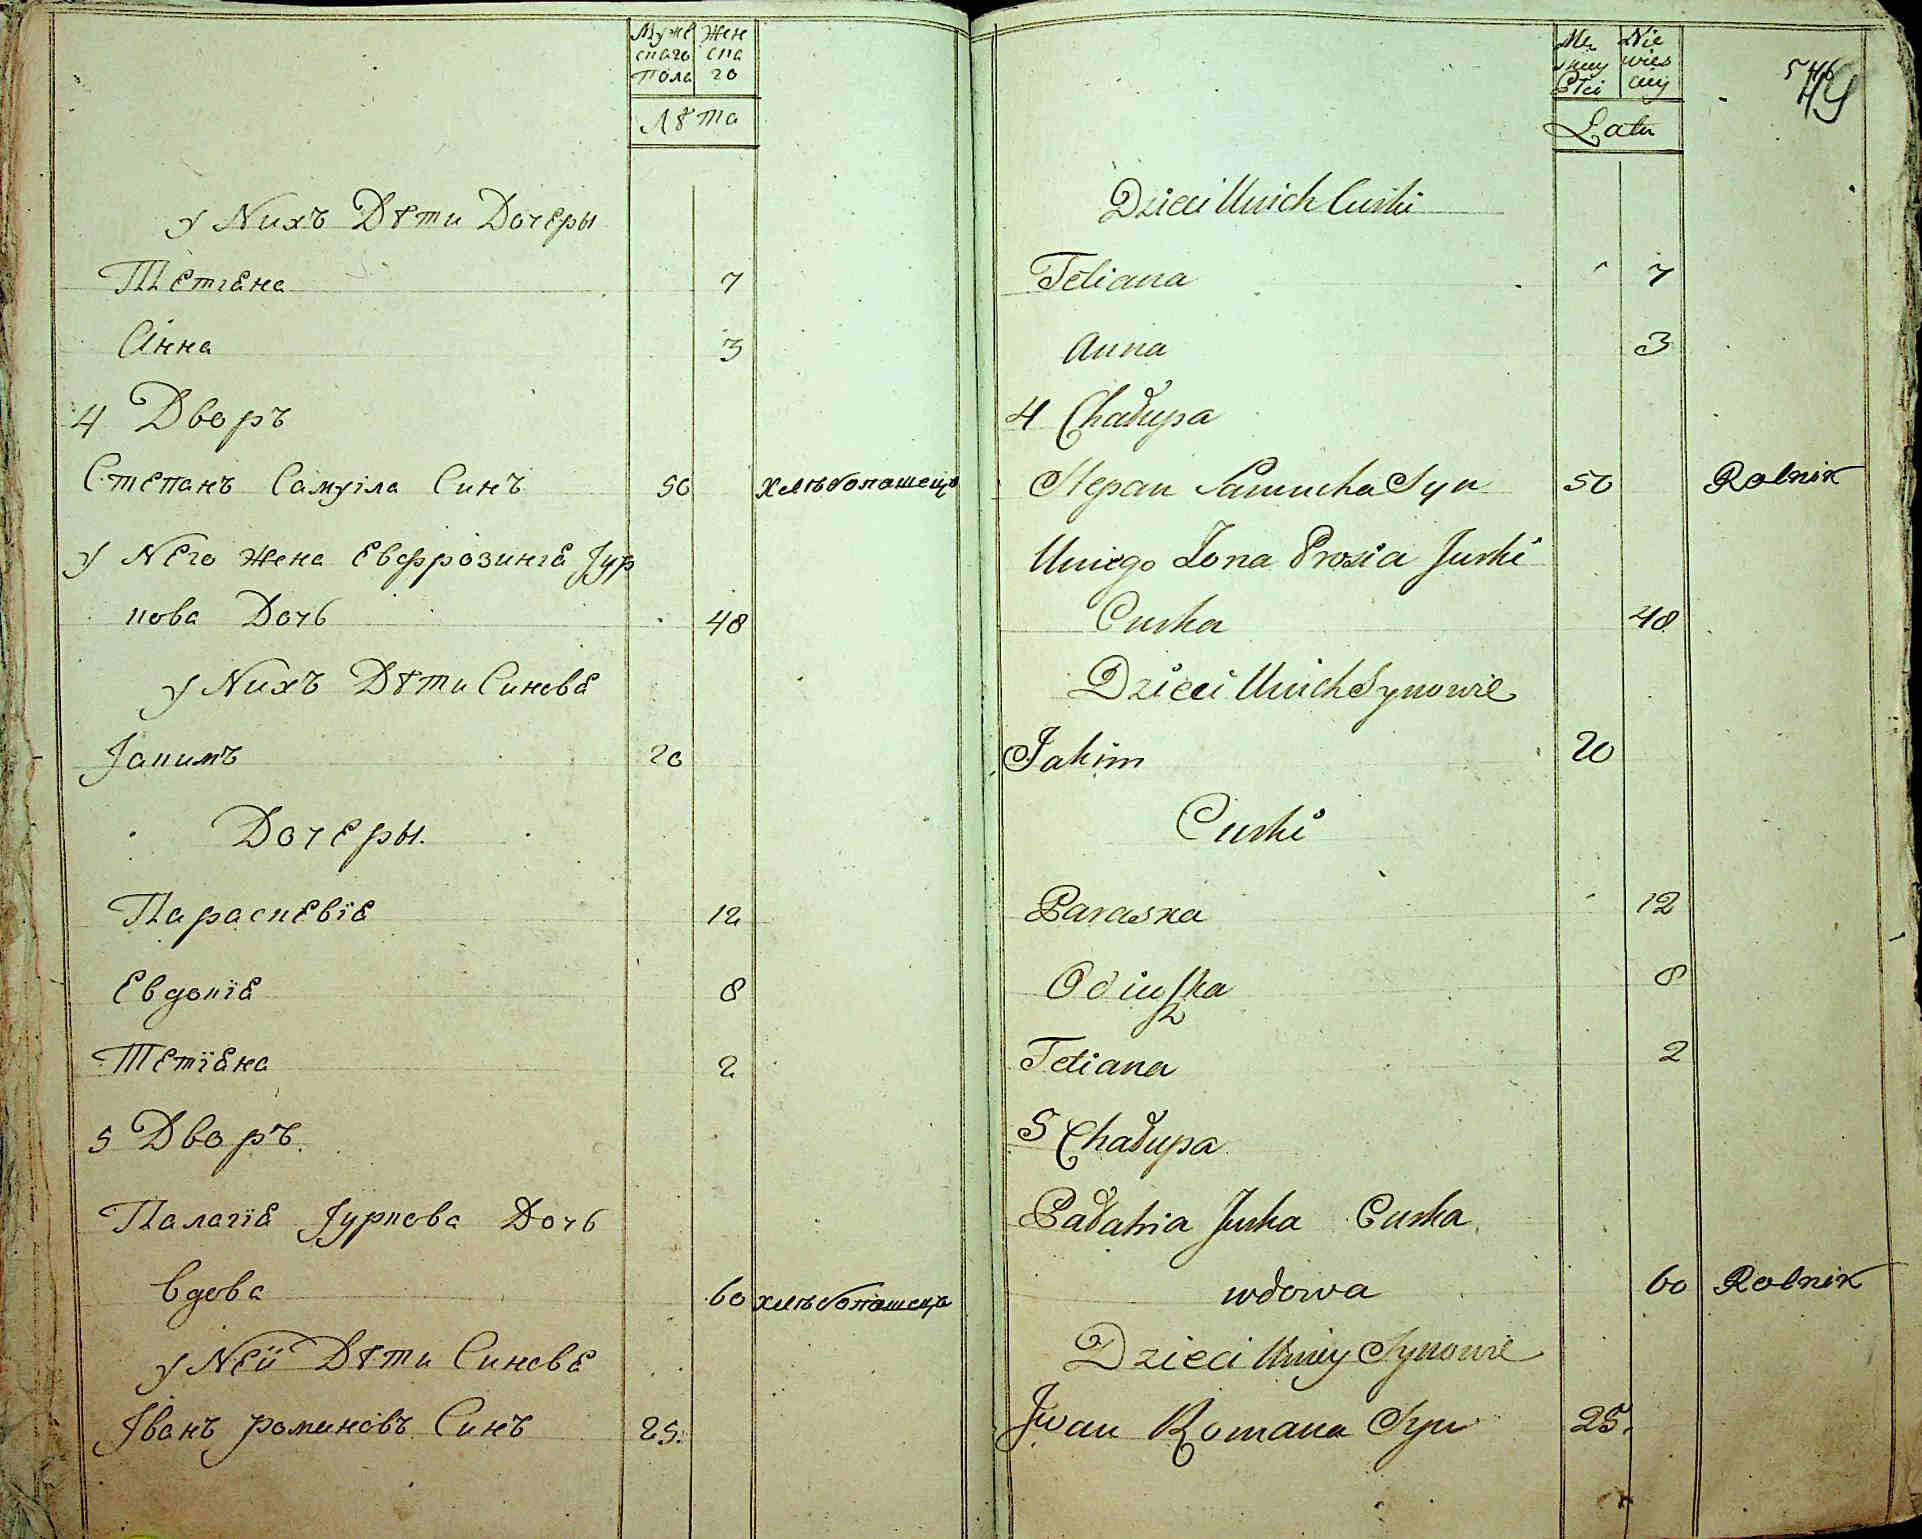 Муже
скаго
Пола
Жен
ска
го
Лѣта
у Нихъ Дѣти Дочеры
Тетіана 7
Анна 3
4 Дворъ
Степанъ Самуіла Синъ 50 хлѣбопашецъ
у Него жена Евфрозиніа Jур
кова Дочь 48
у Нихъ Дѣти Синова
Jакимъ 20
Дочеры.
Параскевїа 12
Евдокїа 8
Тетїана 2
5 Дворъ.
Палагїа Jуркова Дочь
вдова 60 хлѣбопашецъ
у Неи Дѣти Синова
Jванъ романовъ Синъ 25.
Mę
skiey
Płci
Nie
wies
ciiy
Lata
Dzieci Unich Curki
Tetiana 7
Anna 3
4 Chałupa
Stepan Samucha Syn 50 Rolnik
Uniego Zona Prosia Jurki
Curka 48
Dzieci Unich Synowie
Jakim 20
Curki
Paraska 12
8
Tetiana 2
5 Chałupa
Pałahia Jurka Curka
wdowa 60 Rolnik
Dzieci Uniey Synowie
Jwan Romana Syn 25.